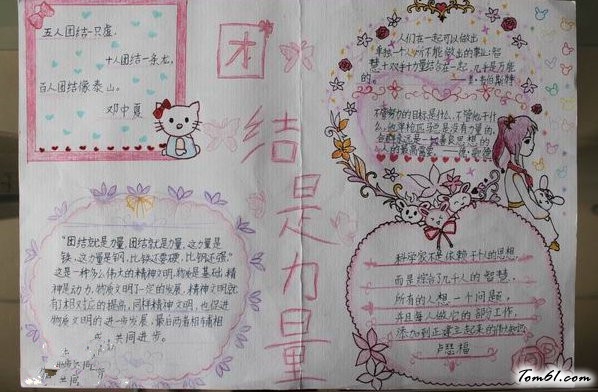 团结是力量
五人团结一只虎,
十人团结一条龙,
百人团结像泰山。
邓中夏
人们在一起可以做出
单独一个人所不能做出的事业;智
慧+双手+力量结合在一起,几乎是万能
的。——韦伯斯特
不管努力的目标是什么,不管他干什
么,他单枪匹马总是没有力量的。
合群永远是一切善良思想的
人的最高需要。——歌德
"团结就是力量,团结就是力量,这力量是
铁,这力量是钢,比铁还要硬,比钢还强."
这是一种多么伟大的精神文明,物质是基础,精
神是动力,物质文明了一定的发展,精神文明就
有相对应的提高,同样精神文明,也促进
物质文明的进一步发展,最后两者相辅相
成,共同进步。
共同
科学家不是依赖于个人的思想,
而是综合了几千人的智慧,
所有的人想一个问题,
并且每人做它的部分工作,
添加到正建立起来的伟大知识
卢瑟福
Tom61.com